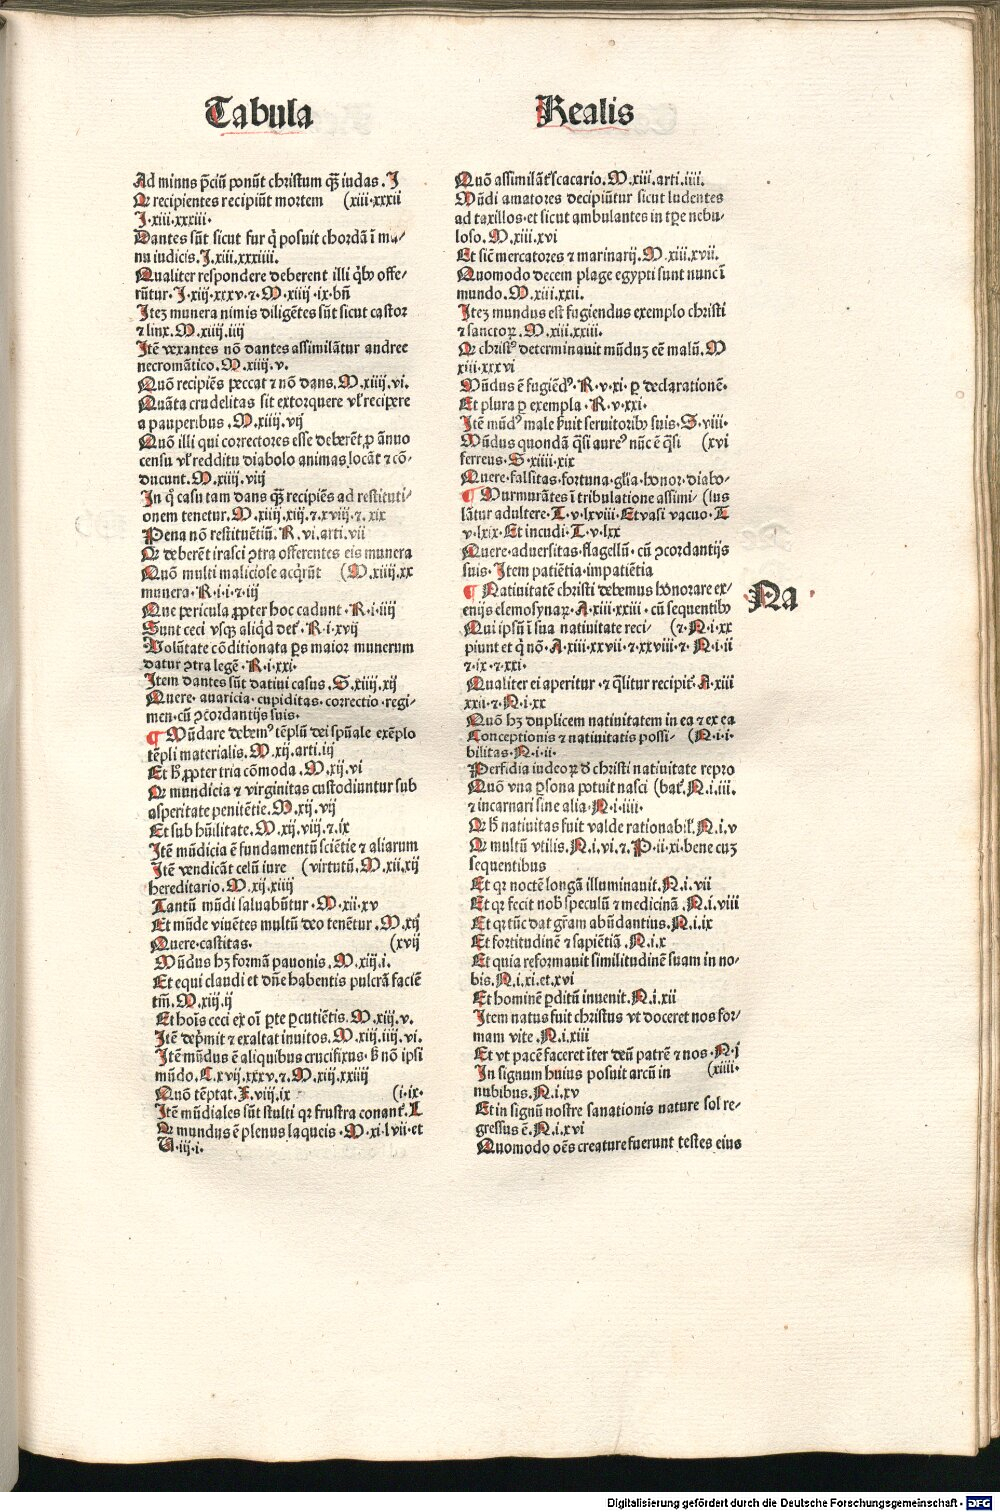 Tabula
Ad minus p̄ciũ ponũt christum q̃ȝ iudas. J
Qꝛ recipientes recipiũt mortem (xiii·xxxii
J·xiii·xxxiii·
Dantes sũt sicut fur q̇ posuit chordã ĩ ma⸗
nu iudicis. J.xiii.xxxiiii.
Qualiter respondere deberent illi q̇bꝰ offe⸗
rũtur·J·xiij·xxxv·⁊·M·xiiij·ix·bñ
Iteȝ munera nimis diligẽtes sũt sicut castor
⁊ linx. M.xiiij.iiij
Itẽ vexantes nõ dantes assimilãtur andree
necromãtico. M.xiiij.v.
Quõ recipiẽs peccat ⁊ nõ dans. M.xiiij.vi.
Quãta crudelitas sit extorquere vł recipere
a pauperibus. M.xiiij.vij
Quõ illi qui correctores esse deberẽt ꝓ ãnuo
censu vł redditu diabolo animas locãt ⁊ cõ⸗
ducunt. M.xiiij.viij
In q̊ casu tam dans q̃ȝ recipiẽs ad restituti⸗
onem tenetur. M.xiiij.xiij.⁊.xviij·⁊·xix
Pena nõ restituẽtiũ. R.vi.arti.vii
Qꝛ deberẽt irasci ꝯtra offerentes eis munera
Quõ multi maliciose acq̇rũt (M.xiiij.xx
munera·R·i·i·⁊·iij
Que pericula ꝓpter hoc cadunt·R·i·iiij
Sunt ceci vsqȝ aliqd det̉·R·i·xvij
Volũtate cõditionata ꝑs maior munerum
datur ꝯtra legẽ·R·i·xxi·
Item dantes sũt dativi casus. S.xiiij.xij
Quere·auaricia·cupiditas·correctio·regi⸗
men·cũ ꝯcordantijs suis·
¶ Mũdare debemꝰ tẽplũ dei spũale exẽplo
tẽpli materialis. M.xij.arti.iij
Et h̓ ꝓpter tria cõmoda. M.xij.vi
Qꝛ mundicia ⁊ virginitas custodiuntur sub
asperitate penitẽtie. M.xij.vij
Et sub hũilitate. M.xij.viij.⁊.ix
Itẽ mũdicia ẽ fundamentũ sciẽtie ⁊ aliarum
Itẽ vendicãt celũ iure (virtutũ. M.xij.xij
hereditario. M.xij.xiiij
Tantũ mũdi saluabũtur·M·xii·xv
Et mũde viuẽtes multũ deo tenẽtur·M·xij
Quere·castitas· (xvij
Mũdus hȝ formã pauonis. M.xiij.i.
Et equi claudi et dñe habentis pulcrã faciẽ
tm̃. M.xiij.ij
Et hoĩs ceci ex oĩ ꝑte ꝑcutiẽtis. M.xiij.v.
Itẽ dep̓mit ⁊ exaltat inuitos. M.xiij.iiij.vi.
Itẽ mũdus ẽ aliquibus crucifixus·h̓ nõ ipsi
mũdo. C.xvij.xxxv.⁊.M.xij.xxiiij
Quõ tẽptat. F.viij.ix (i·ix·
Itẽ mũdiales sũt stulti qꝛ frustra conant̉. L
Qꝛ mundus ẽ plenus laqueis·M·xi·lvii·et
V·iij·i·
Realis
Quõ assimilat̉ scacario. M.xiii.arti.iiii.
Mũdi amatores decipiũtur sicut ludentes
ad taxillos·et sicut ambulantes in tꝑe nebu⸗
loso. M.xiii.xvi
Et siẽ mercatores ⁊ marinarij. M.xiii.xvii.
Quomodo decem plage egypti sunt nunc ĩ
mundo. M.xiii.xxii.
Iteȝ mundus est fugiendus exemplo christi
⁊ sanctoꝝ. M.xiii.xxiii.
Qꝛ christꝰ determinauit mũduȝ eẽ malũ. M
xiii·xxxvi
Mũdus ẽ fugiẽdꝰ·R·v·xi·ꝑ declarationẽ·
Et plura ꝑ exempla·R·v·xxi·
Itẽ mũdꝰ male ẜuit seruitoribꝰ suis·S·viii·
Mũdus quondã q̃si aureꝰ nũc ẽ q̃si (xvi
ferreus·S·xiiii·xix
Quere·falsitas·fortuna·gl̃ia·honor·diabo⸗
¶ Murmurãtes ĩ tribulatione assimi⸗ (lus
lãtur adultere·T·v·lxviii·Et vasi vacuo·T
v·lxix·Et incudi·T·v·lxx
Quere·aduersitas·flagellũ·cũ ꝯcordantijs
suis·Item patiẽtia·impatiẽtia
¶ Natiuitatẽ christi debemus honorare ex⸗
enijs elemosynaꝝ·A·xiii·xxiii·cũ sequentibꝰ
Na
Qui ipsũ ĩ sua natiuitate reci⸗ (⁊·N·i·xx
piunt et q̇ nõ·A·xiii·xxvii·⁊·xxviii·⁊·N·i·ii
⁊·ix·⁊·xxi·
Qualiter ei aperitur·⁊ q̃liter recipit̉·A·xiii
xxii·⁊·N·i·xx
Quõ hȝ duplicem natiuitatem in ea ⁊ ex ea
Conceptionis ⁊ natiuitatis possi⸗ (N·i·i·
bilitas·N·i·ii·
Perfidia iudeoꝝ ð christi natiuitate repro
Quõ vna ꝑsona potuit nasci (bat̉. N.i.iii.
⁊ incarnari sine alia·N·i·iiii·
Qꝛ h̓ natiuitas fuit valde rationabił. N.i.v
Qꝛ multũ vtilis. N.i.vi.⁊.P.ii.xi·bene cuȝ
sequentibus
Et qꝛ noctẽ longã illuminauit. N.i.vii
Et qꝛ fecit nob̃ speculũ ⁊ medicinã. N.i.viii
Et qꝛ tũc dat gr̃am abũdantius. N.i.ix
Et fortitudinẽ ⁊ sapiẽtiã. N.i.x
Et quia reformauit similitudinẽ suam in no⸗
bis. N.i.xi.et.xvi
Et hominẽ ꝑditũ inuenit. N.i.xii
Item natus fuit christus vt doceret nos for⸗
mam vite. N.i.xiii
Et vt pacẽ faceret ĩter deũ patrẽ ⁊ nos·N·i
In signum huius posuit arcũ in (xiiii·
nubibus. N.i.xv
Et in signũ nostre sanationis nature sol re⸗
gressus ẽ. N.i.xvi
Quomodo oẽs creature fuerunt testes eius
Digitalisierung gefördert durch die Deutsche Forschungsgemeinschaft - DFG